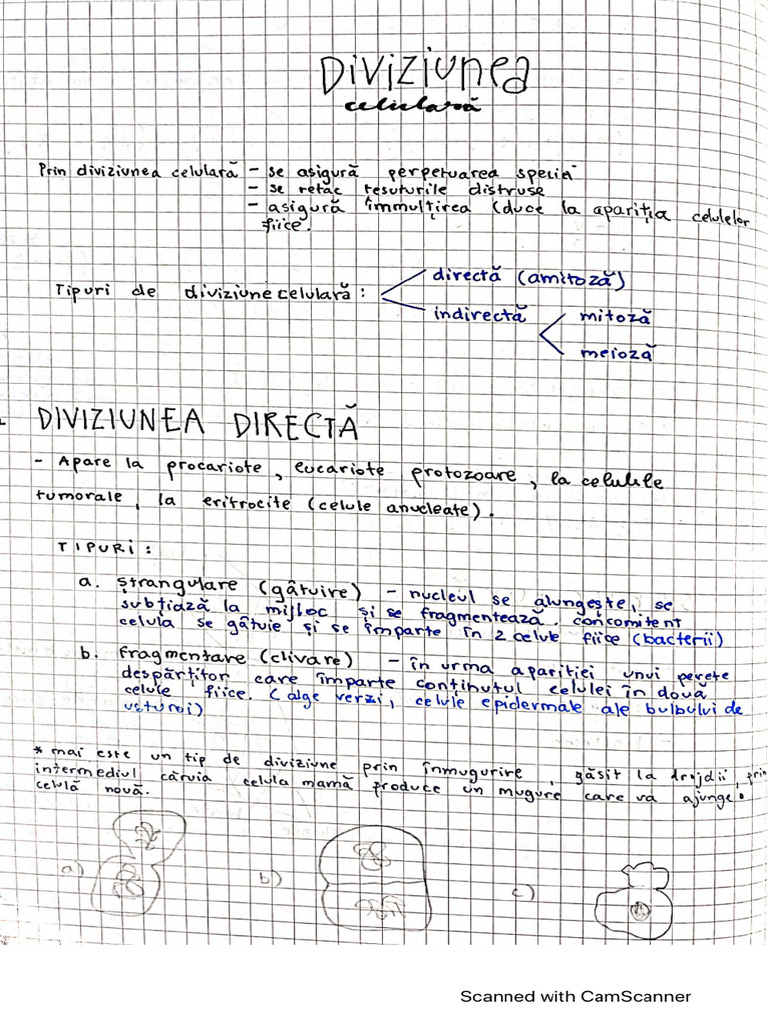 Diviziunea
celulară
Prin diviziunea celulară - se asigură perpetuarea speciei
- se refac țesuturile distruse
- asigură înmulțirea (duce la apariția celulelor
fiice.
directă (amitoză)
Tipuri de diviziune celulară :
indirectă
mitoză
meioză
DIVIZIUNEA DIRECTĂ
- Apare la procariote, eucariote protozoare, la celulele
tumorale, la eritrocite (celule anucleate).
TIPURI :
a. ștrangulare (gâtuire) - nucleul se alungește, se
subțiază la mijloc și se fragmentează. concomitent
celula se gâtuie și se împarte în 2 celule fiice (bacterii)
b. fragmentare (clivare) - în urma apariției unui perete
despărțitor care împarte conținutul celulei în două
celule fiice. (alge verzi, celule epidermale ale bulbului de
usturoi)
* mai este un tip de diviziune prin înmugurire, găsit la drojdii, prin
intermediul căruia celula mamă produce un mugure care va ajunge o
celulă nouă.
a)
b)
c)
Scanned with CamScanner